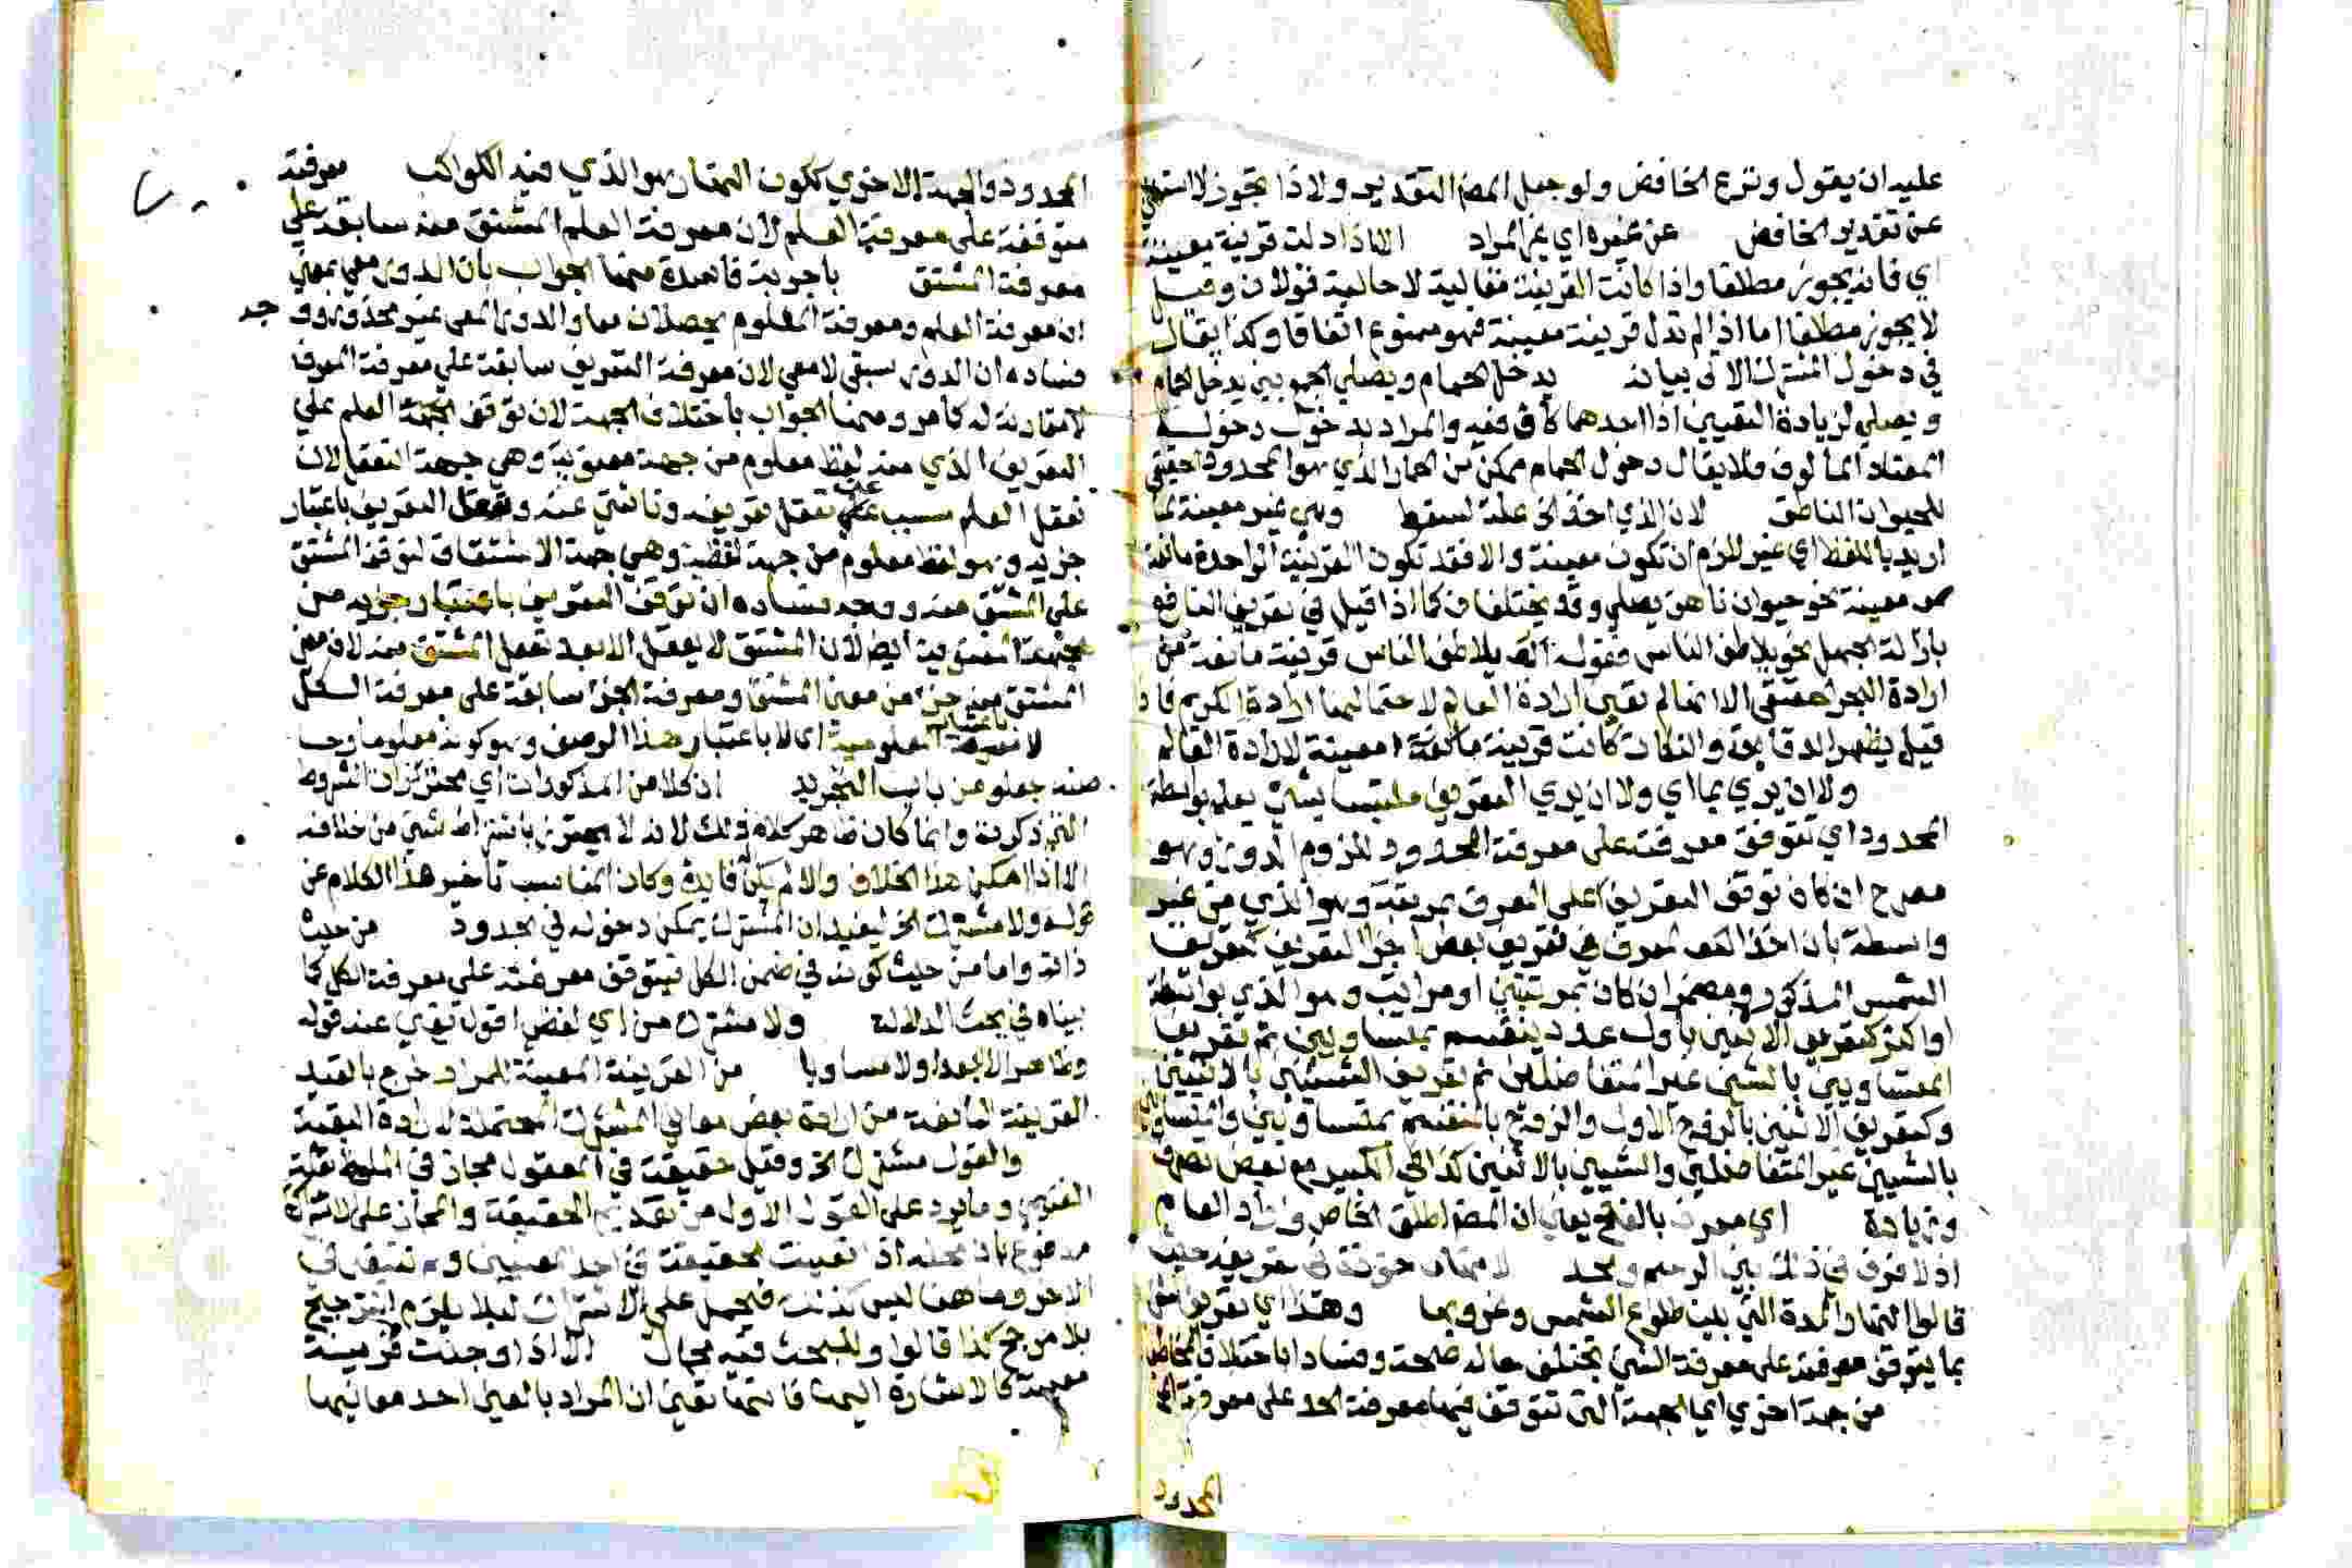 عليه ان يقول ونزع الخافض ولو جعل المض التقدير ولاذا تجوز لاستغنى
عن تقدير الخافض عن غيره اي غير المراد الا اذا دلت قرينة معينة
اي فانه يجوز مطلقا واذا كانت القرينة مقالية لا حالية قولان وقيل
لا يجوز مطلقا اما اذا لم تدل قرينة معينة فهو ممنوع اتفاقا وكذا يقال
في دخول المشترك الاتى بيانه يدخل الحمام ويصلي الجمع بين يدخل الحمام
ويصلي لزيادة التعيين اذ احدهما كاف فيه والمراد بدخول دخوله
المعتاد المالوف فلا يقال دخول الحمام ممكن من الحمار الذي هو المحدود الحقيقي
للحيوان الناطق لان الذي اخذ الخ علة لسقط وهي غير معينة لما
اريد باللفظ اي غير لازم ان تكون معينة والا فقد تكون القرينة الواحدة مانعة
معينة نحو حيوان ناهق يصلي وقد يختلفان كما اذا قيل في تعريف
بازالة الجهل نحو يلاطف الناس فقوله يلاطف الناس قرينة مانعة من
ارادة البحر الحقيقي الا انها لم تعين ارادة العالم لاحتمالها ارادة الكريم فاذ
قيل يظهر الدقايق والنكات كانت قرينة مانعة معينة لارادة العالم
ولا ان يدري بما اي ولا ان يدري التعريف ملتبسا بشي يعلم بواسطة
المحدود اي تتوقف معرفته على معرفة المحدود للزوم الدور وهو
مصرح ان كان توقف التعريف على المعرف بمرتبة وهو الذي من غير
واسطة بان اخذ المعرف في تعريف بعض اجزا التعريف كتعريف
الشمس المذكور ومضمر ان كان بمرتبتين او مراتب وهو الذي بواسطة
او اكثر كتعريف الاثنين باول عدد ينقسم بمتساويين ثم تعريف
المتساويين بالشيئين غير المتفاضلين ثم تعريف الشيئين بالاثنين
وكتعريف الاثنين بالزوج الاول والزوج بالمنقسم بمتساويين والمتساويين
بالشيئين غير المتفاضلين والشيئين بالاثنين كذا في الكبير مع بعض تصرف
وزيادة اي معرف بالفتح يعني ان المض اطلق الخاص واراد العام
اذ لا فرق في ذلك بين الرسم والحد في تعريفه حيث
قالوا النهار المدة التي بين طلوع الشمس وغروبها وهذا اي تعريف الشي
بما يتوقف معرفته على معرفة الشي تختلف حاله صحة وفسادا باختلاف المخاطب
من جهة اخرى اي الجهة التي تتوقف فيها معرفة الحد على معرفة
المحدود
المحدود والجهة الاخرى ككون النهار هو الذي فيه الكواكب معرفته
متوقفة على معرفة العلم لان معرفة العلم المشتق منه سابقة على
معرفة المشتق باجوبة فاسدة منها الجواب بان الدور معي بمعنى
ان معرفة العلم ومعرفة المعلوم يحصلان معا والدور المعي غير محذور ووجه
فساده ان الدور سبقي لا معي لان معرفة التعريف سابقة على معرفة المعرف
لا مقارنة له كما مر ومنها الجواب باختلاف الجهة لان توقف العلم على
التعريف الذي منه لفظ معلوم من جهة معنوية وهي جهة التعقل لان
تعقل العلم مسبب عن تعقل تعريفه وناشئ عنه وتوقف التعريف باعتبار
جزيه وهو لفظ معلوم من جهة لفظية وهي جهة الاشتقاق لتوقف المشتق
على المشتق منه ووجه فساده ان توقف التعريف باعتبار جزيه من
الجهة المعنوية ايضا لان المشتق لا يعقل الا بعد تعقل المشتق منه لان معنى
المشتق منه جزء من معنى المشتق ومعرفة الجزء سابقة على معرفة الكل
لا باعتبار المعلومية اي لا باعتبار هذا الوصف وهو كونه معلوما وحسا
جعلوه من باب التجريد ان كلا من المذكورات اي محترزات الشروط
التي ذكرت وانما كان ظاهر كلامه ذلك لانه لا يحترز باشتراط شيئ من خلافه
الا اذا امكن هذا الخلاف والا لم يكن فايدة وكان المناسب تاخير هذا الكلام عن
قوله ولا مشترك الخ ليفيد ان المشترك يمكن دخوله في الحدود من حيث
ذاته واما من حيث كونه في ضمن الكل فتتوقف معرفته على معرفة الكل كما
بيناه في بحث الدلالة ولا مشترك من اي لفظ اقول تعري عند قوله
وظاهرا لا ابعدا ولا مساويا من القرينة المعينة للمراد خرج بالقيد
القرينة المانعة من ارادة بعض معاني المشترك المحتملة لارادة البقية
والقول مشترك الخ وقيل حقيقة في المعقول مجاز في الملفوظ
وما يرد على القول الاول من تقديم الحقيقة والمجاز على الاشتراك
مدفوع بان محله اذا تعينت الحقيقة في احد المعنيين و
الاخر وما هنا ليس كذلك فيحمل على الاشتراك ليلا يلزم الترجيح
بلا مرجح كذا قالوا وللبحث فيه مجال الا اذا وجدت قرينة
معينة كالاشارة اليها فانها تعين ان المراد بالعين احد معانيها